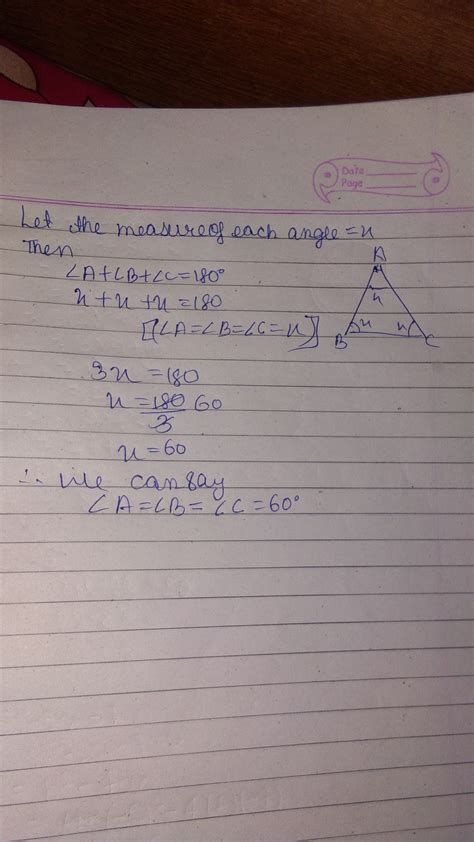 Date
Page
Let the measure of each angle = x
Then
∠A+∠B+∠C=180°
x + x + x = 180
[∠A=∠B=∠C=x]
A
x
x
x
B
C
3x = 180
x = 180 60
3
x = 60
∴ We can say
∠A=∠B= ∠C=60°